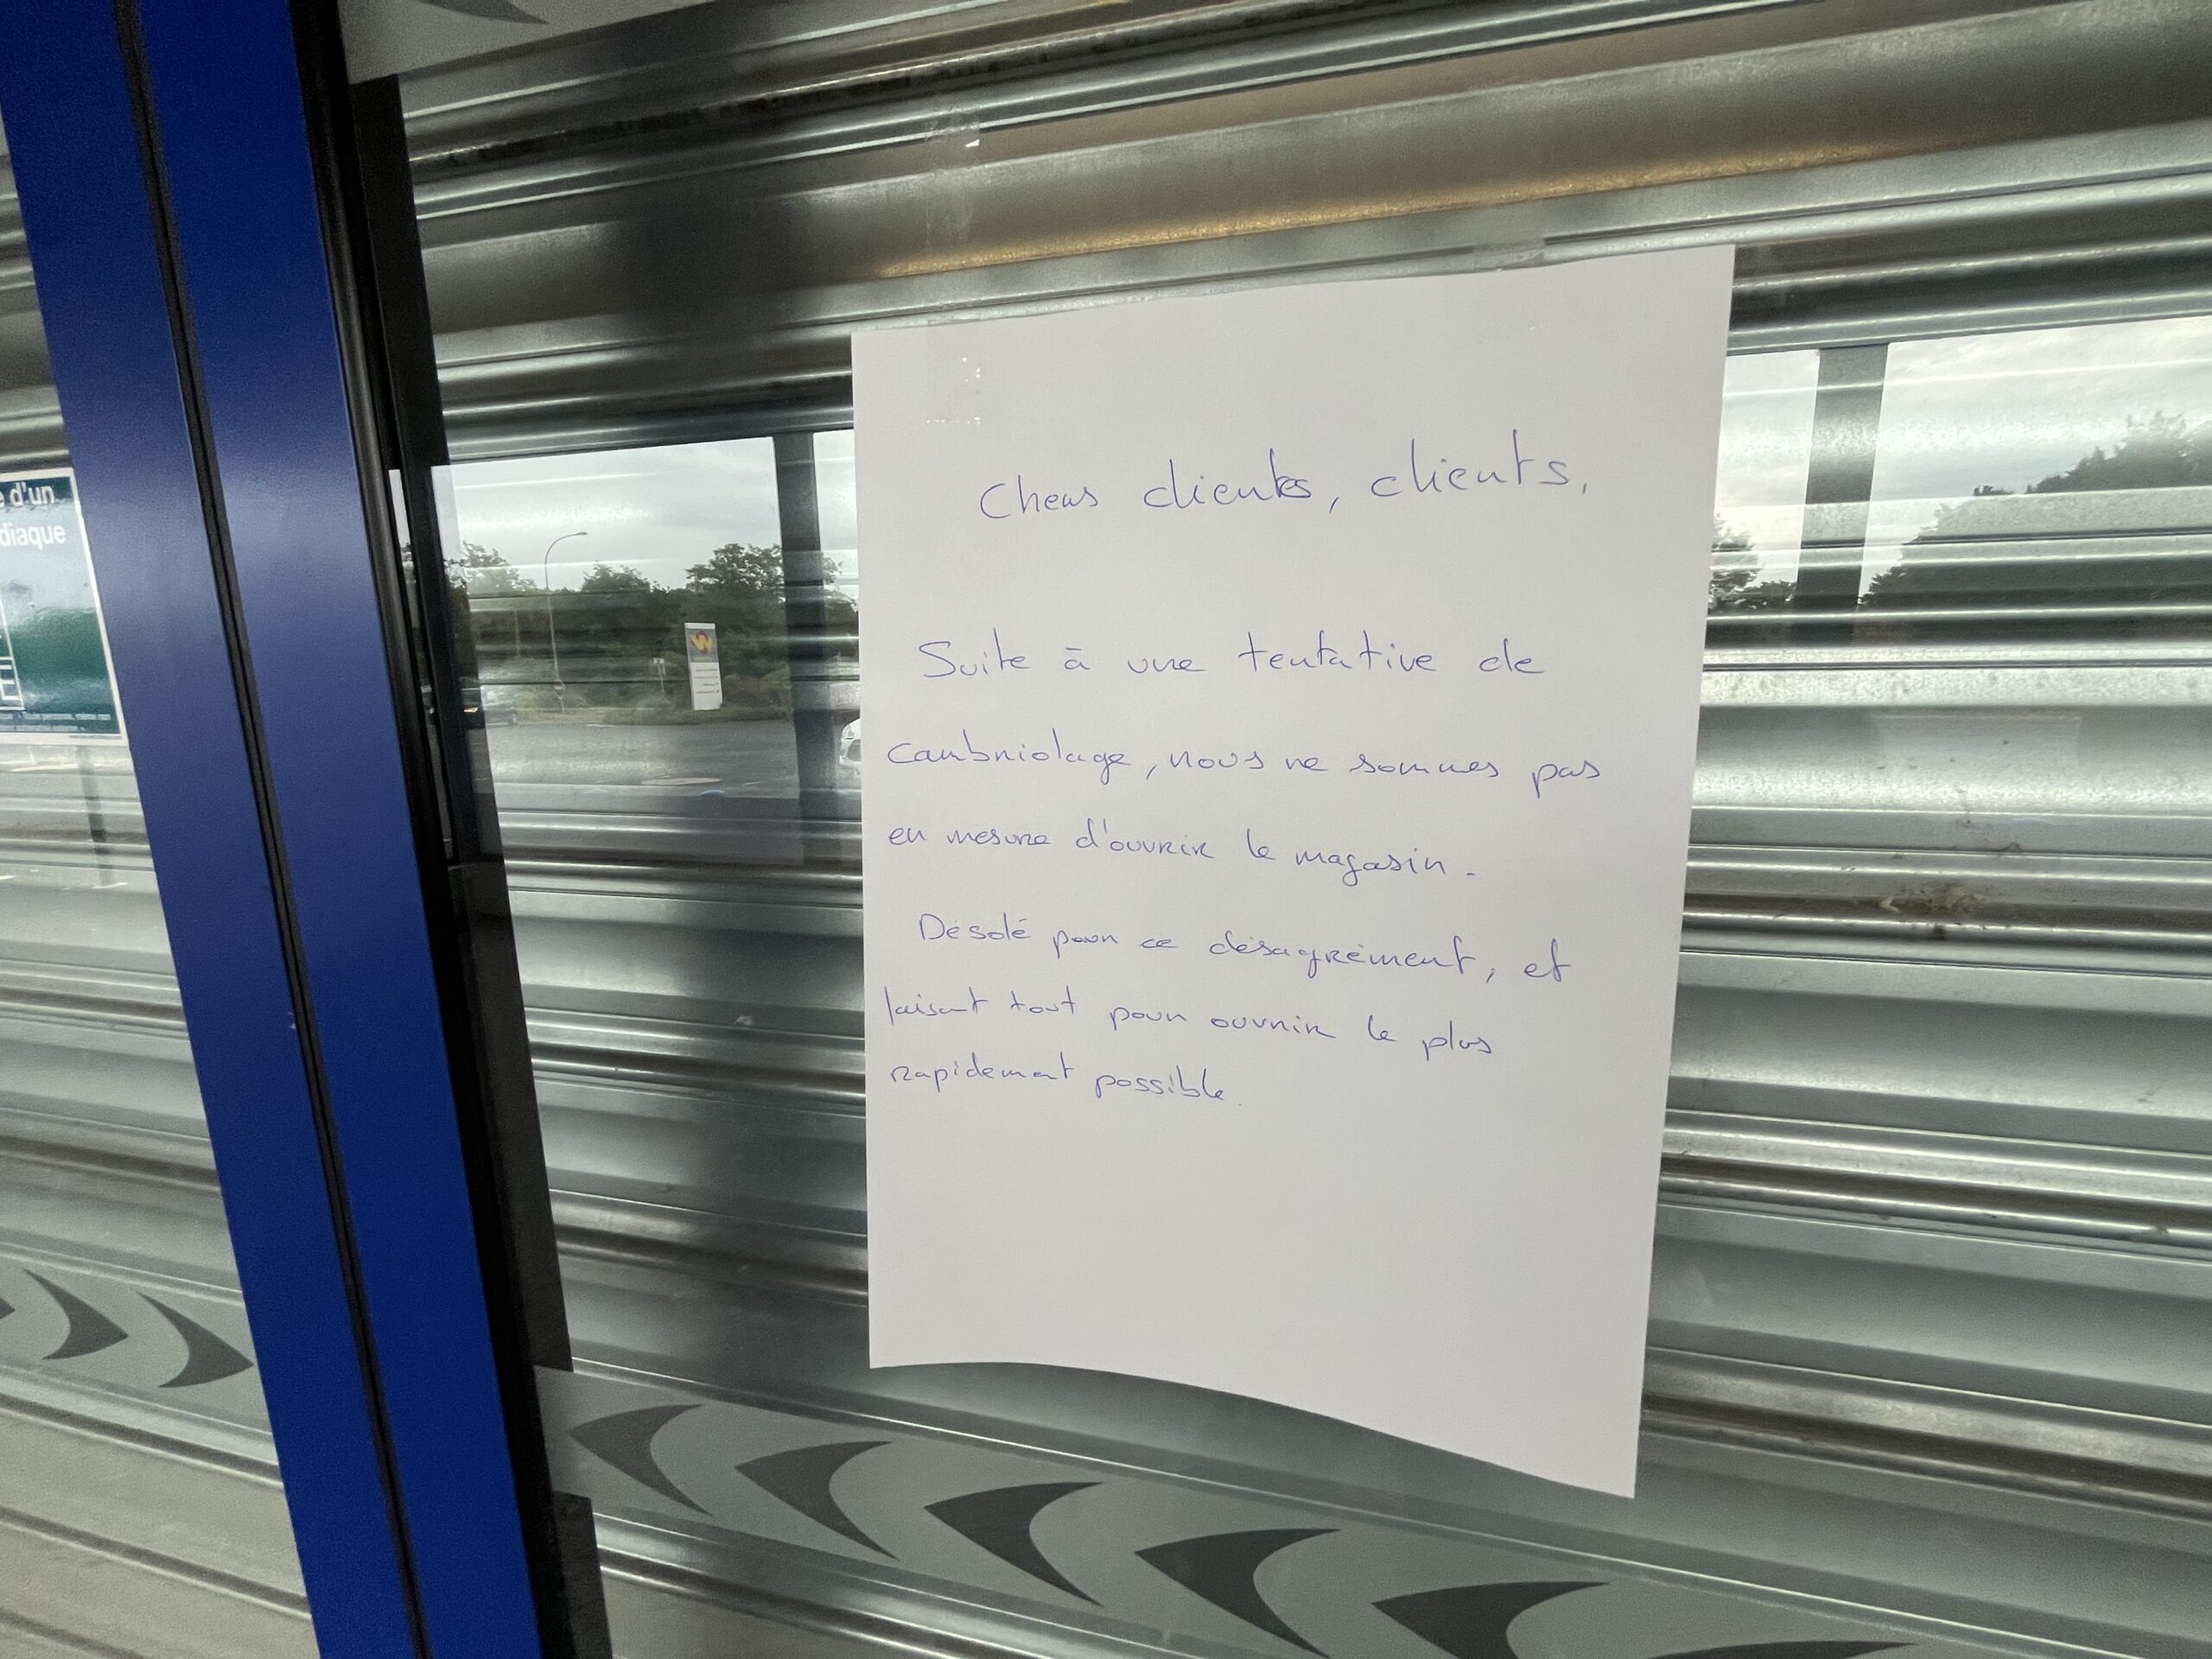 e d'un
diaque
E
Chers clientes, clients,
Suite à une tentative de
cambriolage, nous ne sommes pas
en mesure d'ouvrir le magasin.
Désolé pour ce désagrément, et
faisant tout pour ouvrir le plus
rapidement possible.